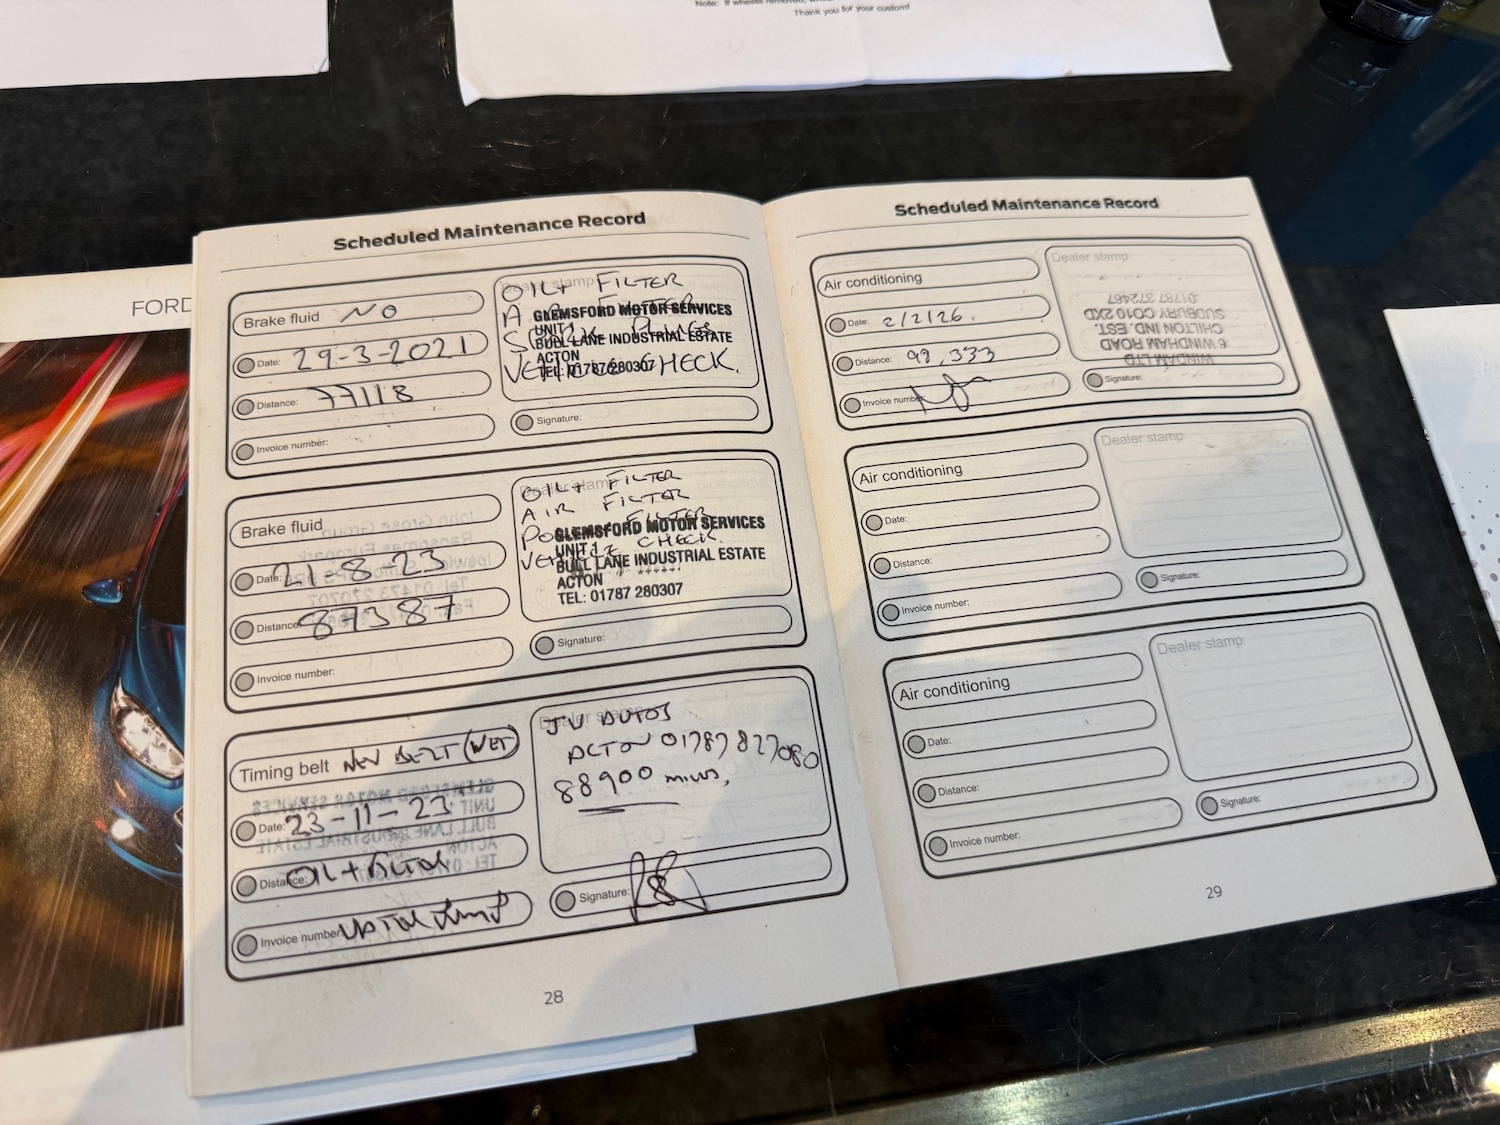 Thank you for your custom!
FORD
Scheduled Maintenance Record
Brake fluid NO
Date: 29-3-2021
Distance: 77118
Invoice number:
Dealer stamp
OIL + FILTER
AIR FILTER
SPARK PLUGS
VEHICLE CHECK.
GLEMSFORD MOTOR SERVICES
UNIT 1
BULL LANE INDUSTRIAL ESTATE
ACTON
TEL: 01787 280307
Signature:
Brake fluid
Date: 21-8-23
Distance: 87387
Invoice number:
Dealer stamp
OIL + FILTER
AIR FILTER
FILTER
VEHICLE CHECK.
GLEMSFORD MOTOR SERVICES
UNIT 1
BULL LANE INDUSTRIAL ESTATE
ACTON
TEL: 01787 280307
Signature:
Timing belt NEW BELT (WET)
Date: 23-11-23
Distance: OIL +
Invoice number:
Dealer stamp
JV AUTOS
ACTON 01787 827080
88900 miles,
Signature:
28
Scheduled Maintenance Record
Air conditioning
Date: 2/2/26.
Distance: 98,333
Invoice number:
Dealer stamp
WINDAM LTD
6 WINDHAM ROAD
CHILTON IND. EST.
SUDBURY CO10 2XD
01787 372467
Signature:
Air conditioning
Date:
Distance:
Invoice number:
Dealer stamp
Signature:
Air conditioning
Date:
Distance:
Invoice number:
Dealer stamp
Signature:
29